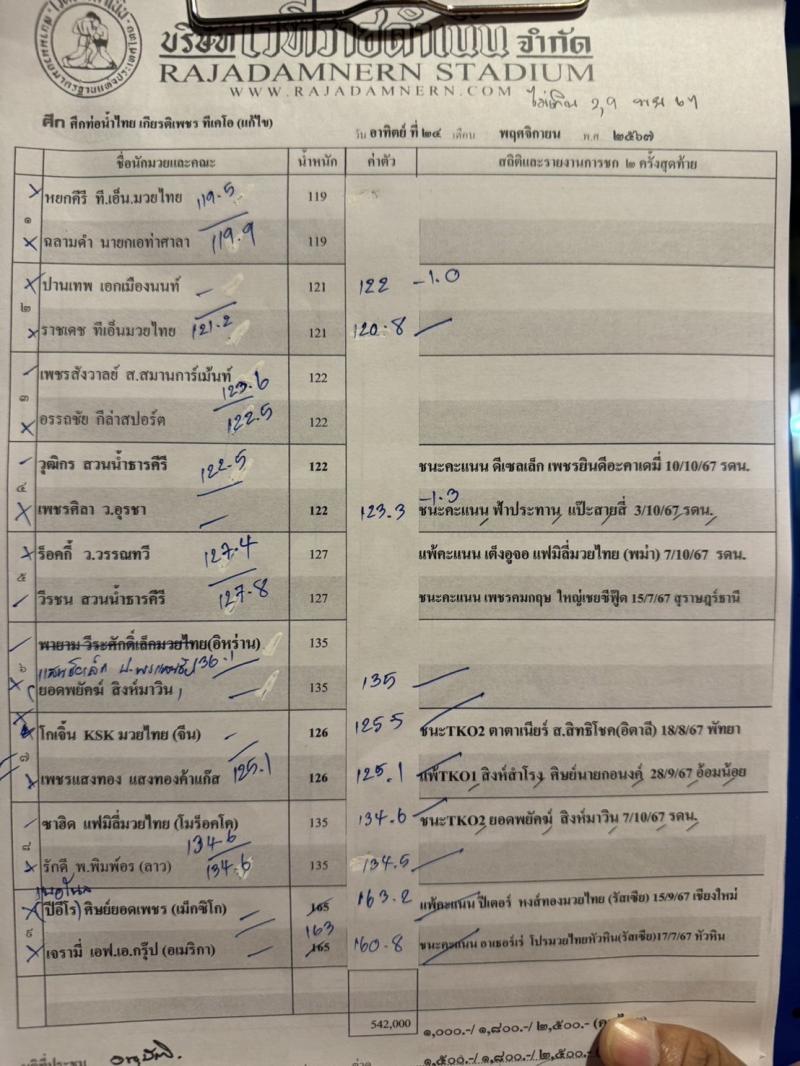 บริษัท เวทีราชดำเนิน จำกัด
RAJADAMNERN STADIUM
WWW.RAJADAMNERN.COM
ศึก ศึกท่อน้ำไทย เกียรติเพชร ทีเคโอ (แก้ไข)
วัน อาทิตย์ ที่ ๒๔ เดือน พฤศจิกายน พ.ศ. ๒๕๖๗
ชื่อนักมวยและคณะ น้ำหนัก ค่าตัว สถิติและรายงานการชก ๒ ครั้งสุดท้าย
หยกคีรี ที.เอ็น.มวยไทย 119.5 119
๑
ฉลามดำ นายกเอท่าศาลา 119.9 119
ปานเทพ เอกเมืองนนท์ 121 122 -1.0
๒
ราชเดช ทีเอ็นมวยไทย 121.2 121 120.8
เพชรสังวาลย์ ส.สมานการ์เม้นท์ 123.6 122
๓
อรรถชัย กีล่าสปอร์ต 122.5 122
วุฒิกร สวนน้ำธารคีรี 122.5 122 ชนะคะแนน ดีเซลเล็ก เพชรยินดีอะคาเดมี่ 10/10/67 รดน.
๔
เพชรศิลา ว.อุรชา 122 123.3 -1.3 ชนะคะแนน ฟ้าประทาน แป๊ะสายสี่ 3/10/67 รดน.
ร็อคกี้ ว.วรรณทวี 127.4 127 แพ้คะแนน เต็งอูจอ แฟมิลี่มวยไทย (พม่า) 7/10/67 รดน.
๕
วีรชน สวนน้ำธารคีรี 127.8 127 ชนะคะแนน เพชรคมกฤษ ใหญ่เชยซีฟู๊ด 15/7/67 สุราษฎร์ธานี
พายาม วีระศักดิ์เล็กมวยไทย(อิหร่าน) 135
๖ 136.1
ยอดพยัคฆ์ สิงห์มาวิน 135 135
โกเจิ้น KSK มวยไทย (จีน) 126 125.5 ชนะTKO2 ตาตาเนียร์ ส.สิทธิโชค(อิตาลี) 18/8/67 พัทยา
๗
เพชรแสงทอง แสงทองค้าแก๊ส 125.1 126 125.1 แพ้TKO1 สิงห์สำโรง ศิษย์นายกอนงค์ 28/9/67 อ้อมน้อย
ซาฮิด แฟมิลี่มวยไทย (โมร็อคโค) 134.6 135 134.6 ชนะTKO2 ยอดพยัคฆ์ สิงห์มาวิน 7/10/67 รดน.
๘
รักดี พ.พิมพ์อร (ลาว) 134.6 135 134.5
(ปีอีโร) ศิษย์ยอดเพชร (เม็กซิโก) 165 163.2 แพ้คะแนน ปีเตอร์ หงส์ทองมวยไทย (รัสเซีย) 15/9/67 เชียงใหม่
๙ 163
เจรามี่ เอฟ.เอ.กรุ๊ป (อเมริกา) 165 160.8 ชนะคะแนน อาเธอร์เร่ โปรมวยไทยหัวหิน(รัสเซีย)17/7/67 หัวหิน
542,000 ๑,๐๐๐.-/ ๑,๘๐๐.-/ ๒,๕๐๐.-
๑,๕๐๐.-/ ๑,๘๐๐.-/ ๒,๕๐๐.-